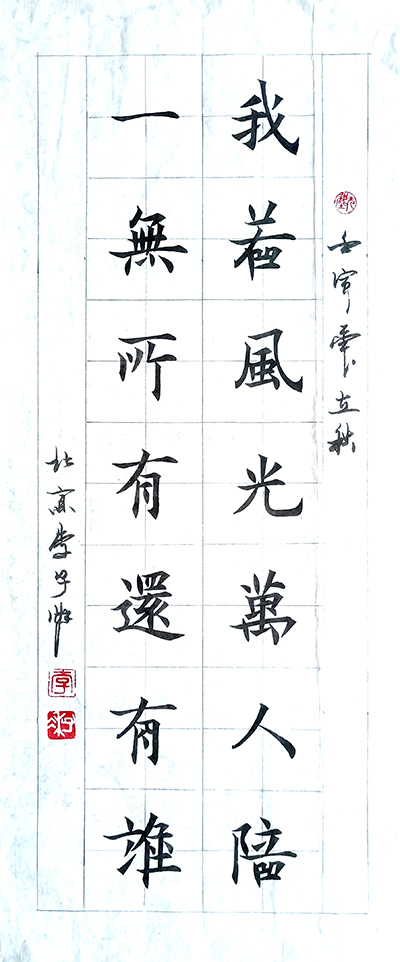 壬寅年立秋
我若風光萬人陪
一無所有還有誰
北京李子
李